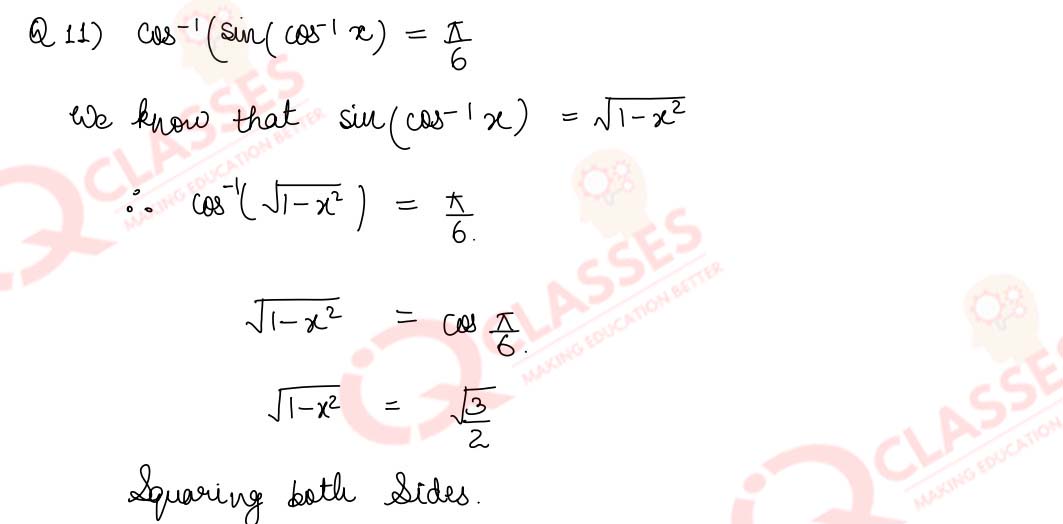 Q 11) cos⁻¹(sin(cos⁻¹ x) = π/6
We know that sin(cos⁻¹ x) = √(1-x²)
∴ cos⁻¹(√(1-x²)) = π/6.
√(1-x²) = cos π/6.
√(1-x²) = √3/2
Squaring both Sides.
CLASSES
MAKING EDUCATION BETTER
CLASSES
MAKING EDUCATION BETTER
CLASSES
MAKING EDUCATION